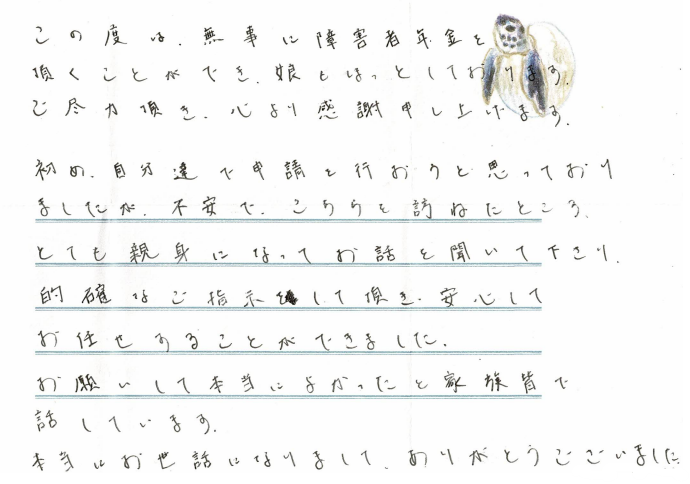 この度は、無事に障害者年金を
頂くことができ、娘もほっとしております。
ご尽力頂き、心より感謝申し上げます。
初め、自分達で申請を行おうと思っており
ましたが、不安で、こちらを訪ねたところ、
とても親身になってお話を聞いて下さり、
的確なご指示をして頂き、安心して
お任せすることができました。
お願いして本当によかったと家族皆で
話しています。
本当にお世話になりまして、ありがとうございました